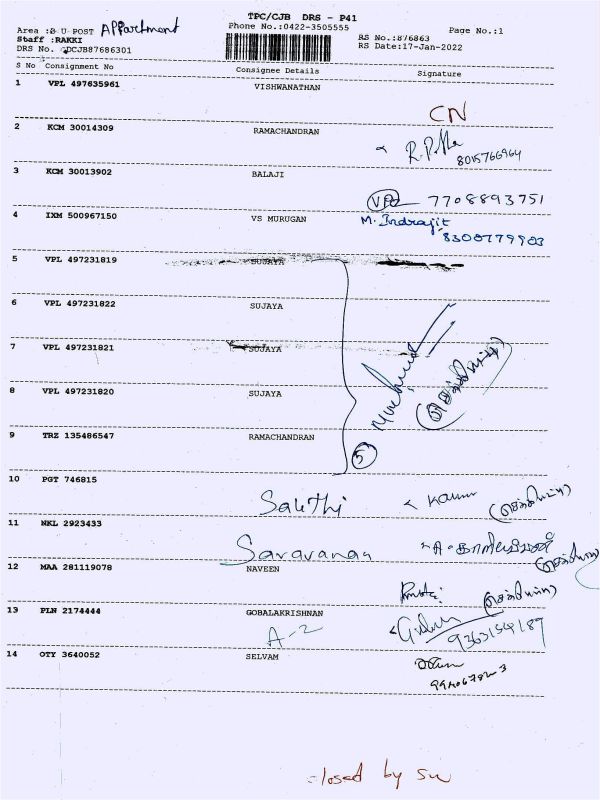 TPC/CJB DRS - P41
Phone No.:0422-3505555
Page No.:1
Area : U POST Appartment
Staff :RAKKI
RS No.:876863
DRS No. :DCJB87686301
RS Date:17-Jan-2022
S No Consignment No Consignee Details Signature
1 VPL 497635961 VISHWANATHAN
CN
2 KCM 30014309 RAMACHANDRAN
8015766964
3 KCM 30013902 BALAJI
7708893751
4 IXM 500967150 VS MURUGAN M. Indrajit
8300779903
5 VPL 497231819 SUJAYA
6 VPL 497231822 SUJAYA
7 VPL 497231821 SUJAYA
8 VPL 497231820 SUJAYA
9 TRZ 135486547 RAMACHANDRAN
5
10 PGT 746815
Sakthi
11 NKL 2923433
Saravanan
12 MAA 281119078 NAVEEN
13 PLN 2174444 GOBALAKRISHNAN
A-2
14 OTY 3640052 SELVAM
closed by